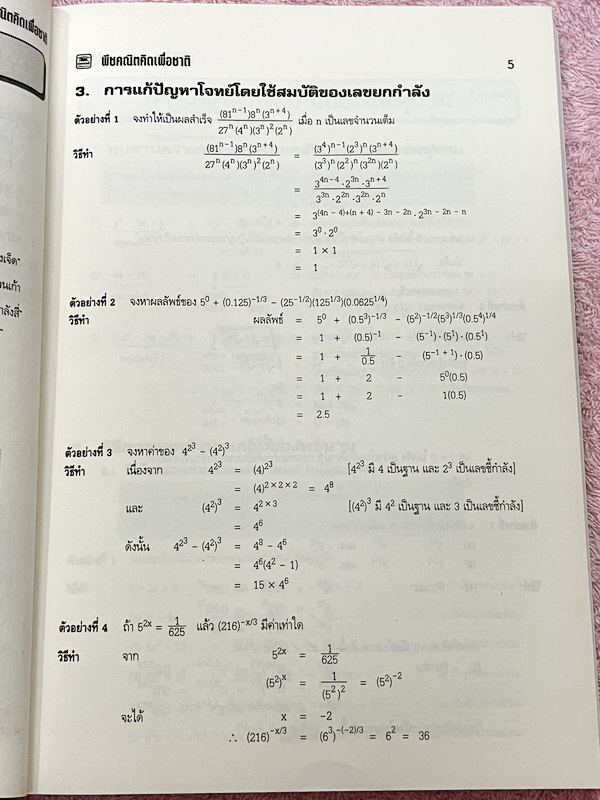 ณิตคิดเพื่อชาติ
งเจ็ด"
นเก้า
าลังสี่"
พีชคณิตคิดเพื่อชาติ
5
3. การแก้ปัญหาโจทย์โดยใช้สมบัติของเลขยกกำลัง
ตัวอย่างที่ 1 จงทำให้เป็นผลสำเร็จ (81ⁿ⁻¹)8ⁿ(3ⁿ⁺⁴) / 27ⁿ(4ⁿ)(3ⁿ)²(2ⁿ) เมื่อ n เป็นเลขจำนวนเต็ม
วิธีทำ (81ⁿ⁻¹)8ⁿ(3ⁿ⁺⁴) / 27ⁿ(4ⁿ)(3ⁿ)²(2ⁿ) = (3⁴)ⁿ⁻¹(2³)ⁿ(3ⁿ⁺⁴) / (3³)ⁿ(2²)ⁿ(3²ⁿ)(2ⁿ)
= 3⁴ⁿ⁻⁴·2³ⁿ·3ⁿ⁺⁴ / 3³ⁿ·2²ⁿ·3²ⁿ·2ⁿ
= 3^((4n – 4)+(n + 4) – 3n – 2n)·2^(3n – 2n – n)
= 3⁰·2⁰
= 1 × 1
= 1
ตัวอย่างที่ 2 จงหาผลลัพธ์ของ 5⁰ + (0.125)^(–1/3) – (25^(–1/2))(125^(1/3))(0.0625^(1/4))
วิธีทำ ผลลัพธ์ = 5⁰ + (0.5³)^(–1/3) – (5²)^(–1/2)(5³)^(1/3)(0.5⁴)^(1/4)
= 1 + (0.5)⁻¹ – (5⁻¹)·(5¹)·(0.5¹)
= 1 + 1/0.5 – (5^(–1 + 1))·(0.5)
= 1 + 2 – 5⁰(0.5)
= 1 + 2 – 1(0.5)
= 2.5
ตัวอย่างที่ 3 จงหาค่าของ 4^(2³) – (4²)³
วิธีทำ เนื่องจาก 4^(2³) = (4)^(2³) [4^(2³) มี 4 เป็นฐาน และ 2³ เป็นเลขชี้กำลัง]
= (4)^(2 × 2 × 2) = 4⁸
และ (4²)³ = 4^(2 × 3) [(4²)³ มี 4² เป็นฐาน และ 3 เป็นเลขชี้กำลัง]
= 4⁶
ดังนั้น 4^(2³) – (4²)³ = 4⁸ – 4⁶
= 4⁶(4² – 1)
= 15 × 4⁶
ตัวอย่างที่ 4 ถ้า 5²ˣ = 1/625 แล้ว (216)^(–x/3) มีค่าเท่าใด
วิธีทำ จาก 5²ˣ = 1/625
(5²)ˣ = 1/(5²)² = (5²)⁻²
จะได้ x = –2
∴ (216)^(–x/3) = (6³)^(–(–2)/3) = 6² = 36